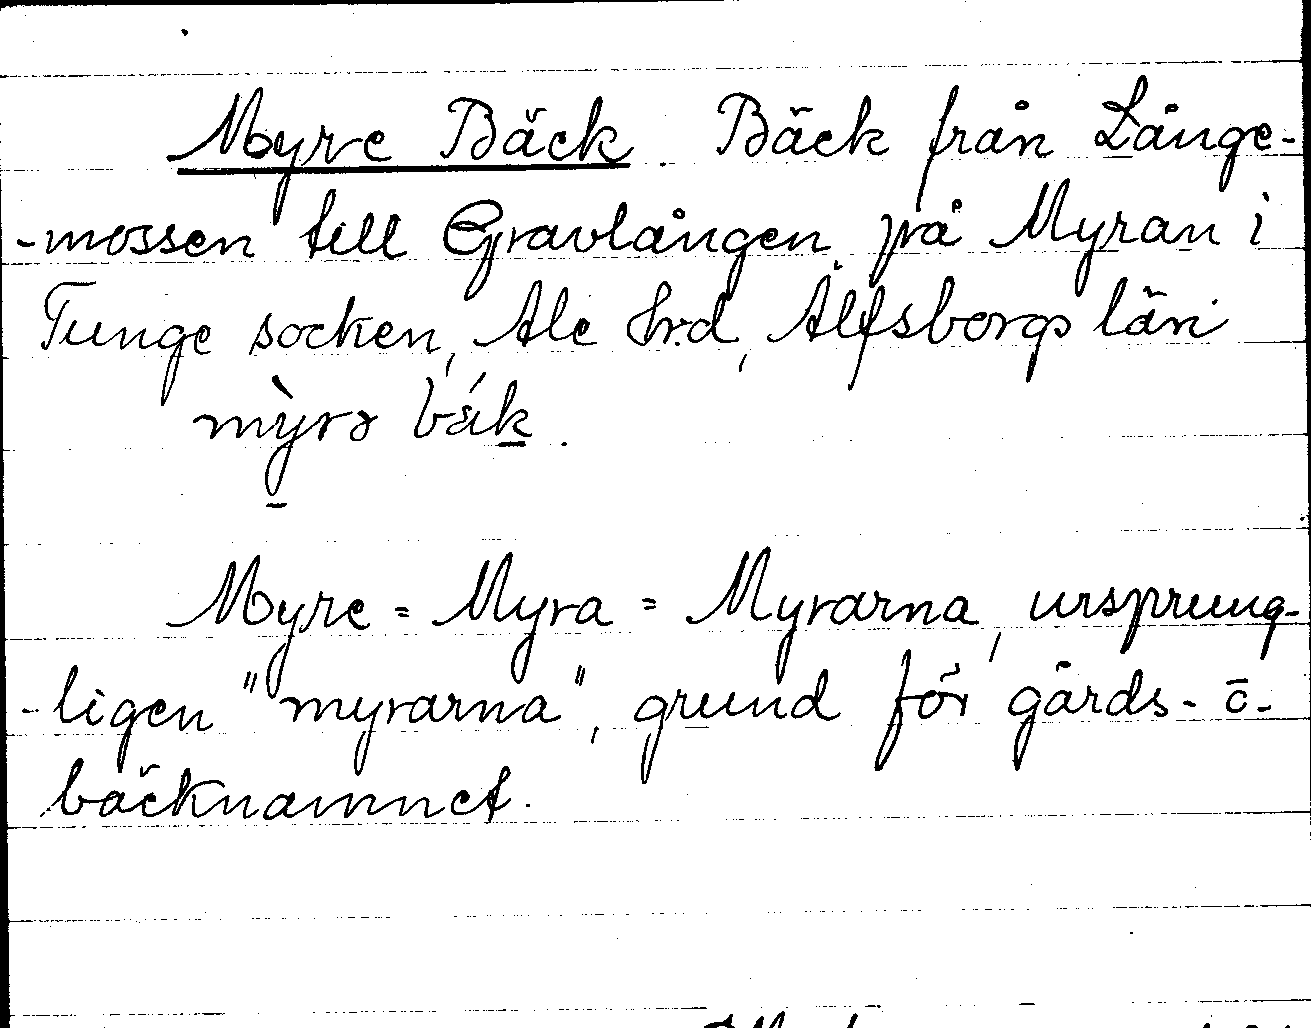 Myre Bäck. Bäck från Långe-
-mossen till Gravlången på Myran i
Tunge socken, Ale Hrd, Älfsborgs län
mỳrə bä́k.
Myre = Myra = Myrarna, ursprung-
-ligen "myrarna", grund för gårds- o̅-
bäcknamnet.